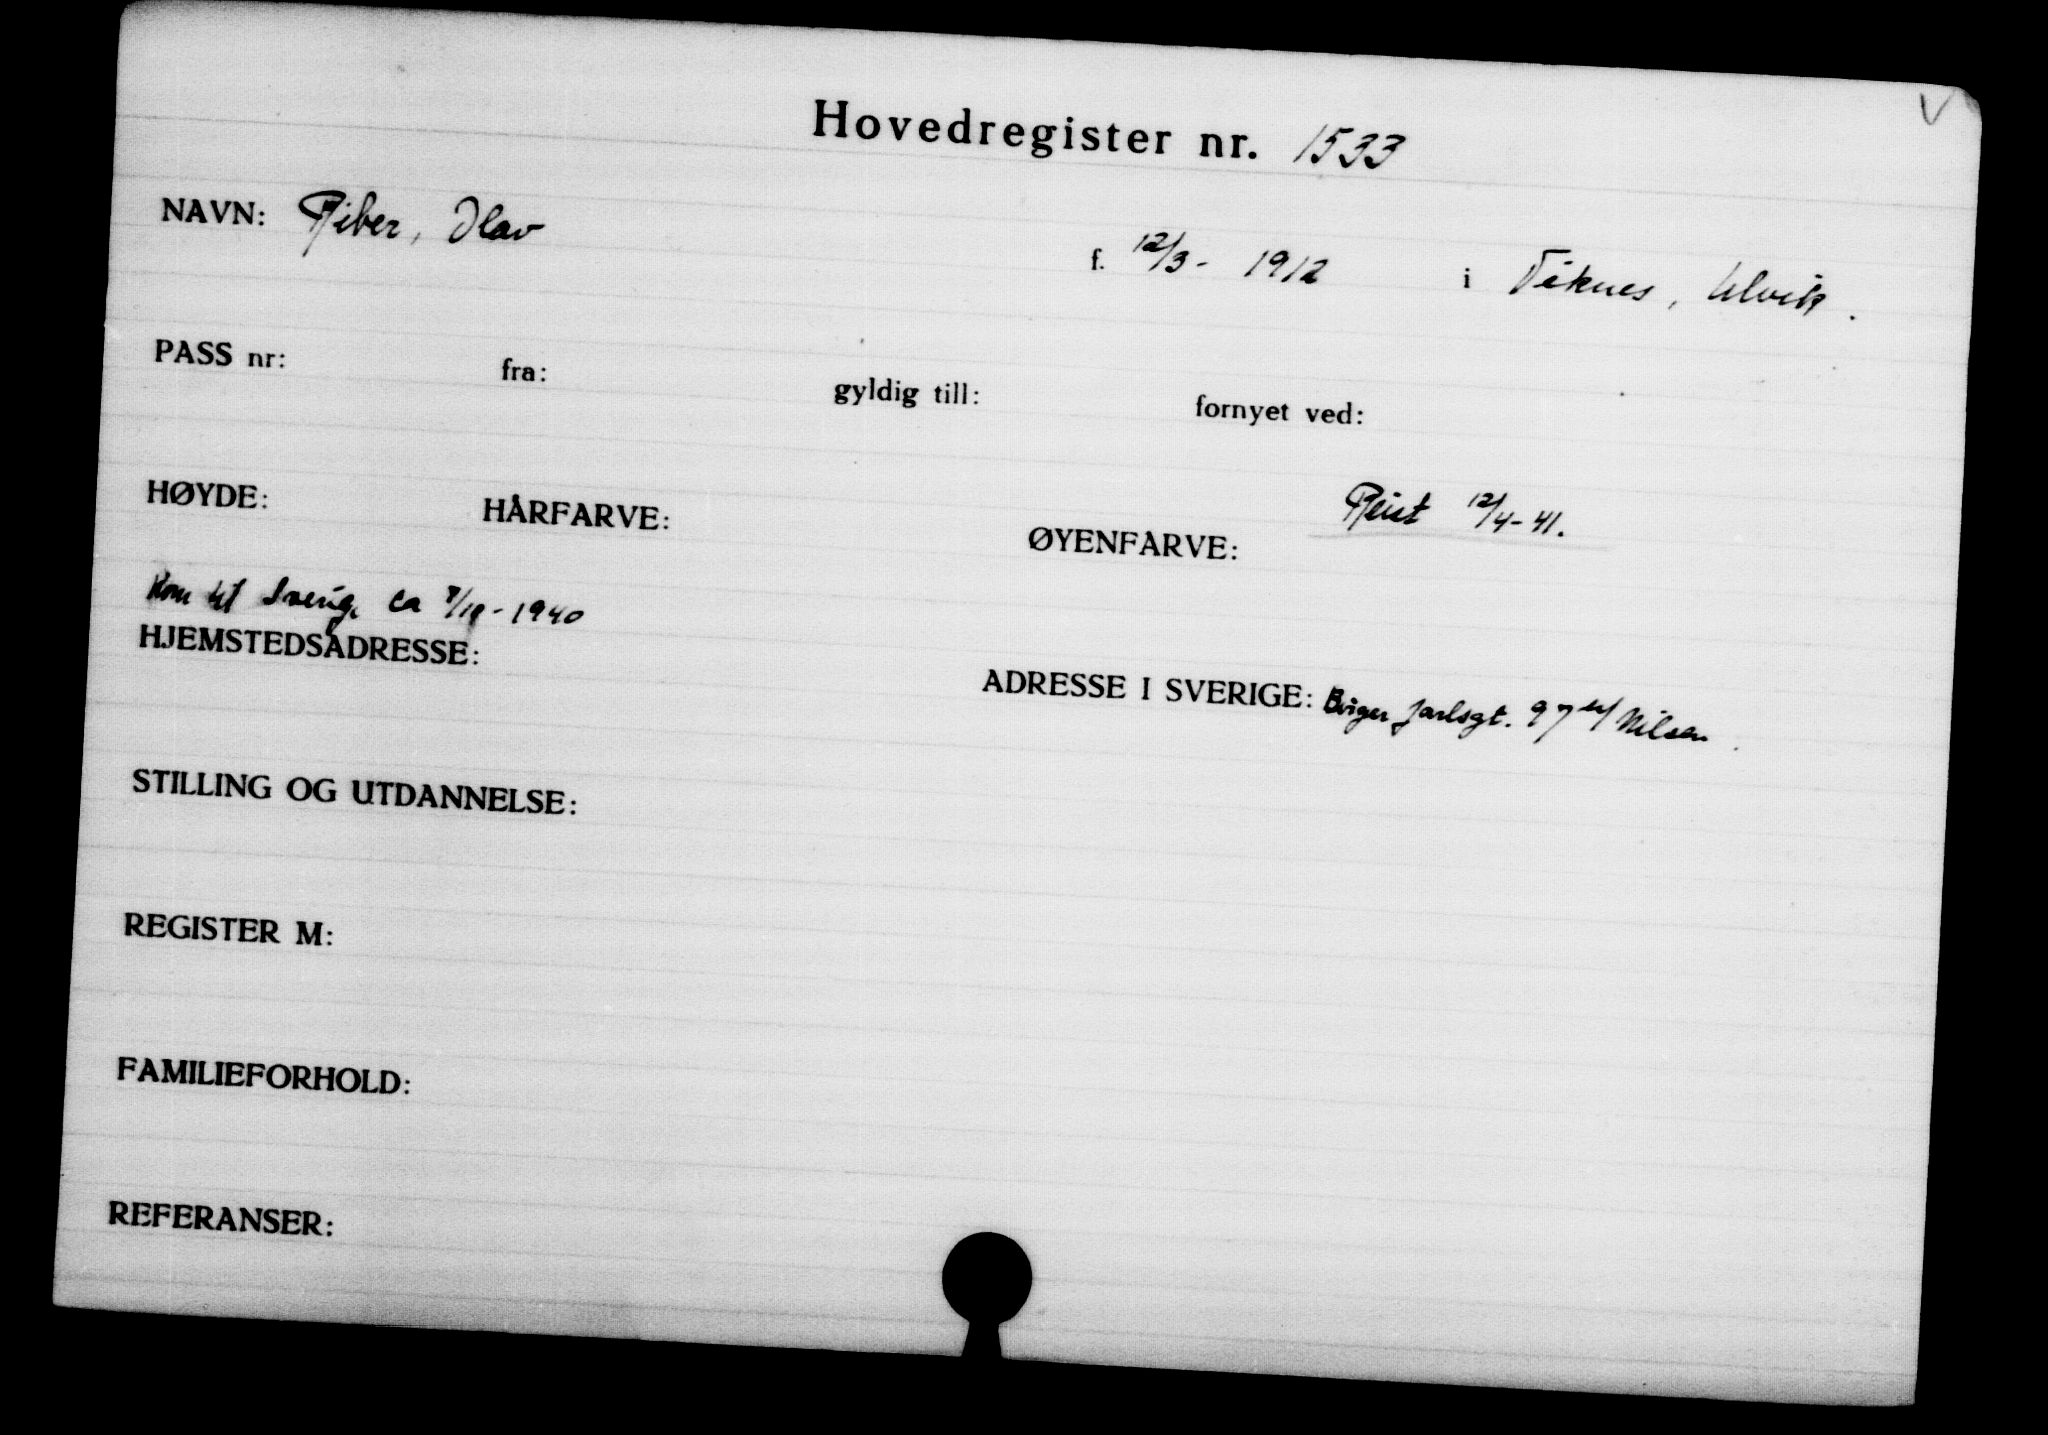 V
Hovedregister nr. 1533
NAVN: Riber, Olav f. 12/3 - 1912 i Viknes, Ulvik.
PASS nr: fra: gyldig till: fornyet ved:
Reist 12/4-41.
HØYDE: HÅRFARVE: ØYENFARVE:
Kom til Sverige ca /10 - 1940
HJEMSTEDSADRESSE: ADRESSE I SVERIGE: Birger Jarlsgt. 97 Nilsen
STILLING OG UTDANNELSE:
REGISTER M:
FAMILIEFORHOLD:
REFERANSER: